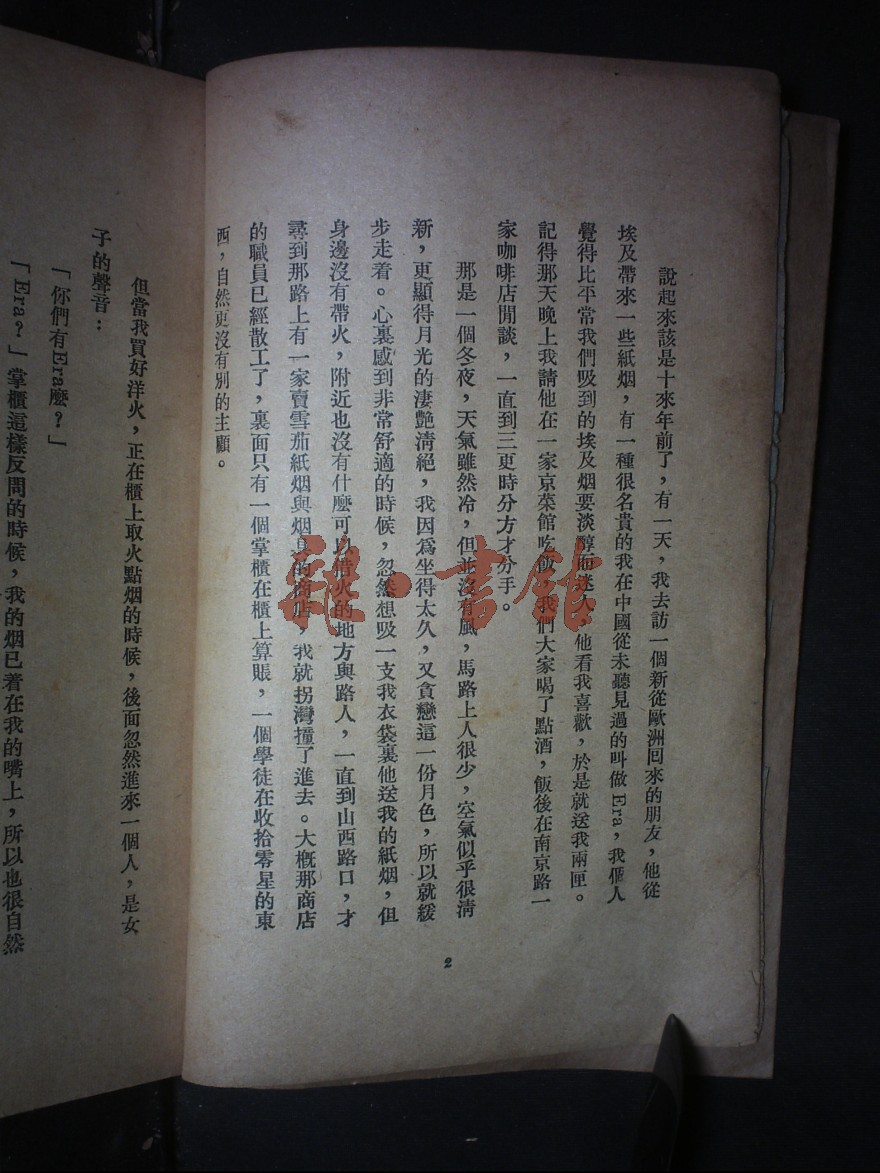 說起來該是十來年前了，有一天，我去訪一個新從歐洲囘來的朋友，他從
埃及帶來一些紙烟，有一種很名貴的我在中國從未聽見過的叫做Era，我個人
覺得比平常我們吸到的埃及烟要淡醇而迷人，他看我喜歡，於是就送我兩匣。
記得那天晚上我請他在一家京菜館吃飯，我們大家喝了點酒，飯後在南京路一
家咖啡店閒談，一直到三更時分方才分手。
那是一個冬夜，天氣雖然冷，但並沒有風，馬路上人很少，空氣似乎很清
新，更顯得月光的凄艷清絕，我因爲坐得太久，又貪戀這一份月色，所以就緩
步走着。心裏感到非常舒適的時候，忽然想吸一支我衣袋裏他送我的紙烟，但
身邊沒有帶火，附近也沒有什麼可以借火的地方與路人，一直到山西路口，才
尋到那路上有一家賣雪茄紙烟與烟具的商店，我就拐灣撞了進去。大概那商店
的職員已經散工了，裏面只有一個掌櫃在櫃上算賬，一個學徒在收拾零星的東
西，自然更沒有別的主顧。
2
但當我買好洋火，正在櫃上取火點烟的時候，後面忽然進來一個人，是女
子的聲音：
「你們有Era麼？」
「Era？」掌櫃這樣反問的時候，我的烟已着在我的嘴上，所以也很自然
雜·書館